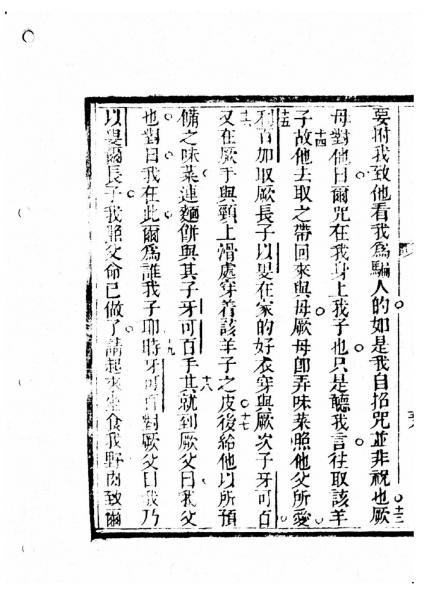 要拊我致他看我爲騙人的如是我自招咒並非祝也十三厥
母對他曰爾咒在我身上我子也只是聽我言往取該羊
子十四故他去取之帶回來與母厥母卽弄味菜照他父所愛
十五利百加取厥長子以叟在家的好衣穿與厥次子牙可百
十六又在厥手與頸上滑處穿着該羊子之皮十七後給他以所預
備之味菜連麵餅與其子牙可百手十八其就到厥父曰我父
也對曰我在此爾爲誰我子耶十九時牙可百對厥父曰我乃
以叟爾長子我照父命已做了請起來坐食我野肉致爾